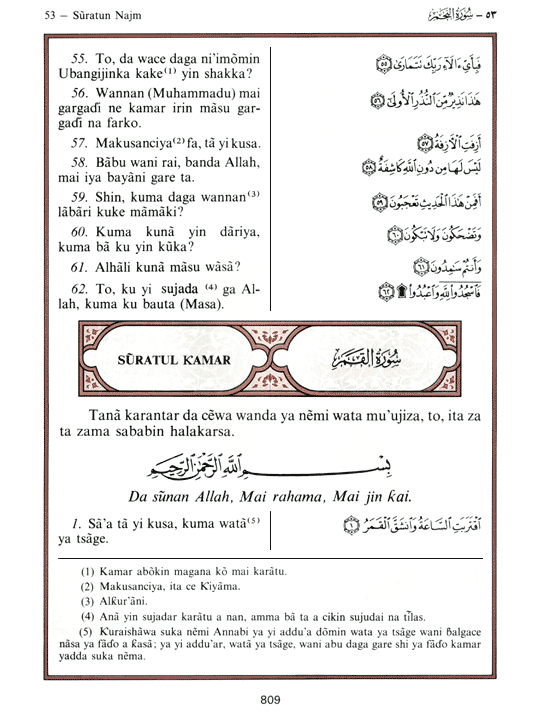 53 — Sūratun Najm
٥٣ — سُورَةُ النَّجْمِ
55. To, da wace daga ni'imōmin
Ubangijinka kake⁽¹⁾ yin shakka?
فَبِأَيِّ ءَالَآءِ رَبِّكَ تَتَمَارَىٰ ۝٥٥
56. Wannan (Muhammadu) mai
gargaɗi ne kamar irin māsu gar-
gaɗi na farko.
هَٰذَا نَذِيرٌ مِّنَ النُّذُرِ الْأُولَىٰ ۝٥٦
57. Makusanciya⁽²⁾ fa, tā yi kusa.
أَزِفَتِ الْآزِفَةُ ۝٥٧
58. Bābu wani rai, banda Allah,
mai iya bayāni gare ta.
لَيْسَ لَهَا مِن دُونِ اللَّهِ كَاشِفَةٌ ۝٥٨
59. Shin, kuma daga wannan⁽³⁾
lābāri kuke māmāki?
أَفَمِنْ هَٰذَا الْحَدِيثِ تَعْجَبُونَ ۝٥٩
60. Kuma kunā yin dāriya,
kuma bā ku yin kūka?
وَتَضْحَكُونَ وَلَا تَبْكُونَ ۝٦٠
61. Alhāli kunā māsu wāsā?
وَأَنتُمْ سَامِدُونَ ۝٦١
62. To, ku yi sujada ⁽⁴⁾ ga Al-
lah, kuma ku bauta (Masa).
فَاسْجُدُوا لِلَّهِ وَاعْبُدُوا ۩ ۝٦٢
SŪRATUL ƘAMAR
سُورَةُ الْقَمَرِ
Tanā karantar da cēwa wanda ya nēmi wata mu'ujiza, to, ita za
ta zama sababin halakarsa.
بِسْمِ اللَّهِ الرَّحْمَٰنِ الرَّحِيمِ
Da sūnan Allah, Mai rahama, Mai jin ƙai.
1. Sā'a tā yi kusa, kuma watā⁽⁵⁾
ya tsāge.
اقْتَرَبَتِ السَّاعَةُ وَانشَقَّ الْقَمَرُ ۝١
(1) Kamar abōkin magana kō mai karātu.
(2) Makusanciya, ita ce Ƙiyāma.
(3) Alƙur'āni.
(4) Anā yin sujadar karātu a nan, amma bā ta a cikin sujudai na tīlas.
(5) Ƙuraishāwa suka nēmi Annabi ya yi addu'a dōmin wata ya tsāge wani ɓalgace
nāsa ya fāɗo a ƙasā; ya yi addu'ar, watā ya tsāge, wani abu daga gare shi ya fāɗo kamar
yadda suka nēma.
809